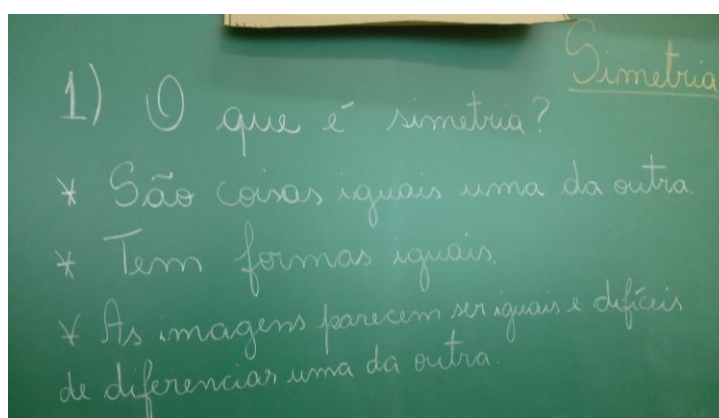 Simetria
1) O que é simetria?
* São coisas iguais uma da outra.
* Tem formas iguais.
* As imagens parecem ser iguais e difíceis
de diferenciar uma da outra.